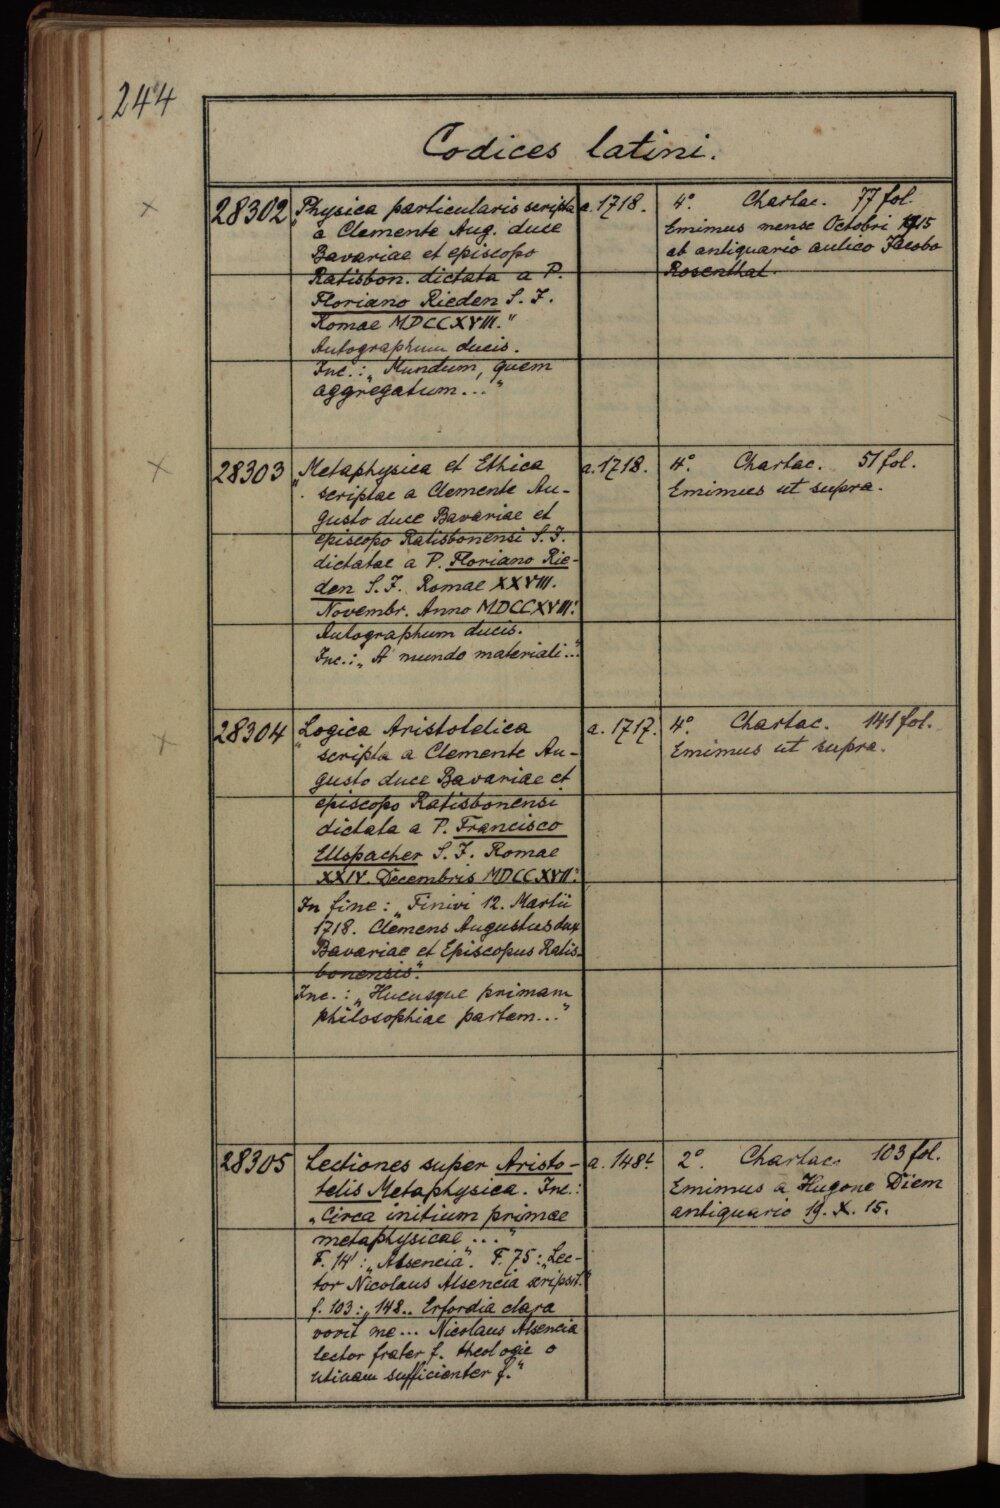 244
Codices latini.
28302
„Physica particularis scripta
a Clemente Aug. duce
Bavariae et episcopo
Ratisbon. dictata a P.
Floriano Rieden S. J.
Romae MDCCXVIII."
Autographum ducis.
Inc.: „Mundum, quem
aggregatum..."
a. 1718.
4°. Chartac. 77 fol.
Emimus mense Octobri 1915
ab antiquario aulico Jacobo
Rosenthal.
28303
„Metaphysica et Ethica
scriptae a Clemente Au-
gusto duce Bavariae et
episcopo Ratisbonensi S. J.
dictatae a P. Floriano Rie-
den S. J. Romae XXVIII.
Novembr. Anno MDCCXVIII."
Autographum ducis.
Inc.: „A mundo materiali..."
a. 1718.
4°. Chartac. 51 fol.
Emimus ut supra.
28304
„Logica Aristotelica
scripta a Clemente Au-
gusto duce Bavariae et
episcopo Ratisbonensi
dictata a P. Francisco
Ellspacher S. J. Romae
XXIV. Decembris MDCCXVII."
In fine: „Finivi 12. Martii
1718. Clemens Augustus dux
Bavariae et Episcopus Ratis-
bonensis".
Inc.: „Hucusque primam
philosophiae partem..."
a. 1717.
4°. Chartac. 141 fol.
Emimus ut supra.
28305
Lectiones super Aristo-
telis Metaphysica. Inc.:
„Circa initium primae
metaphysicae..."
F. 14': „Alsencia". F. 75: „Lec-
tor Nicolaus Alsencia scripsit."
f. 103: „148.. Erfordia clara
vovit me... Nicolaus Alsencia
lector frater f. theologie o
utinam sufficienter f."
a.
2°. Chartac. 103 fol.
Emimus a Hugone Diem
antiquario 19. X. 15.